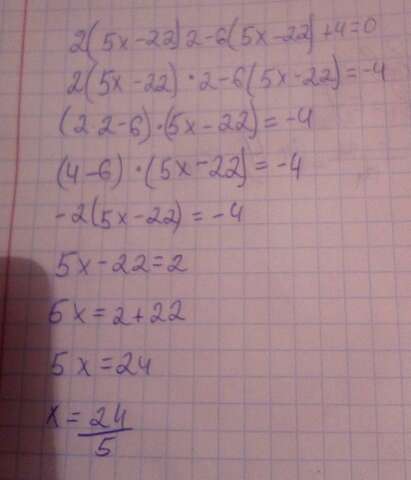 2(5x-22)2-6(5x-22)+4=0
2(5x-22)·2-6(5x-22)=-4
(2 2-6)·(5x-22)=-4
(4-6)·(5x-22)=-4
-2(5x-22)=-4
5x-22=2
6x=2+22
5x=24
x=24/5